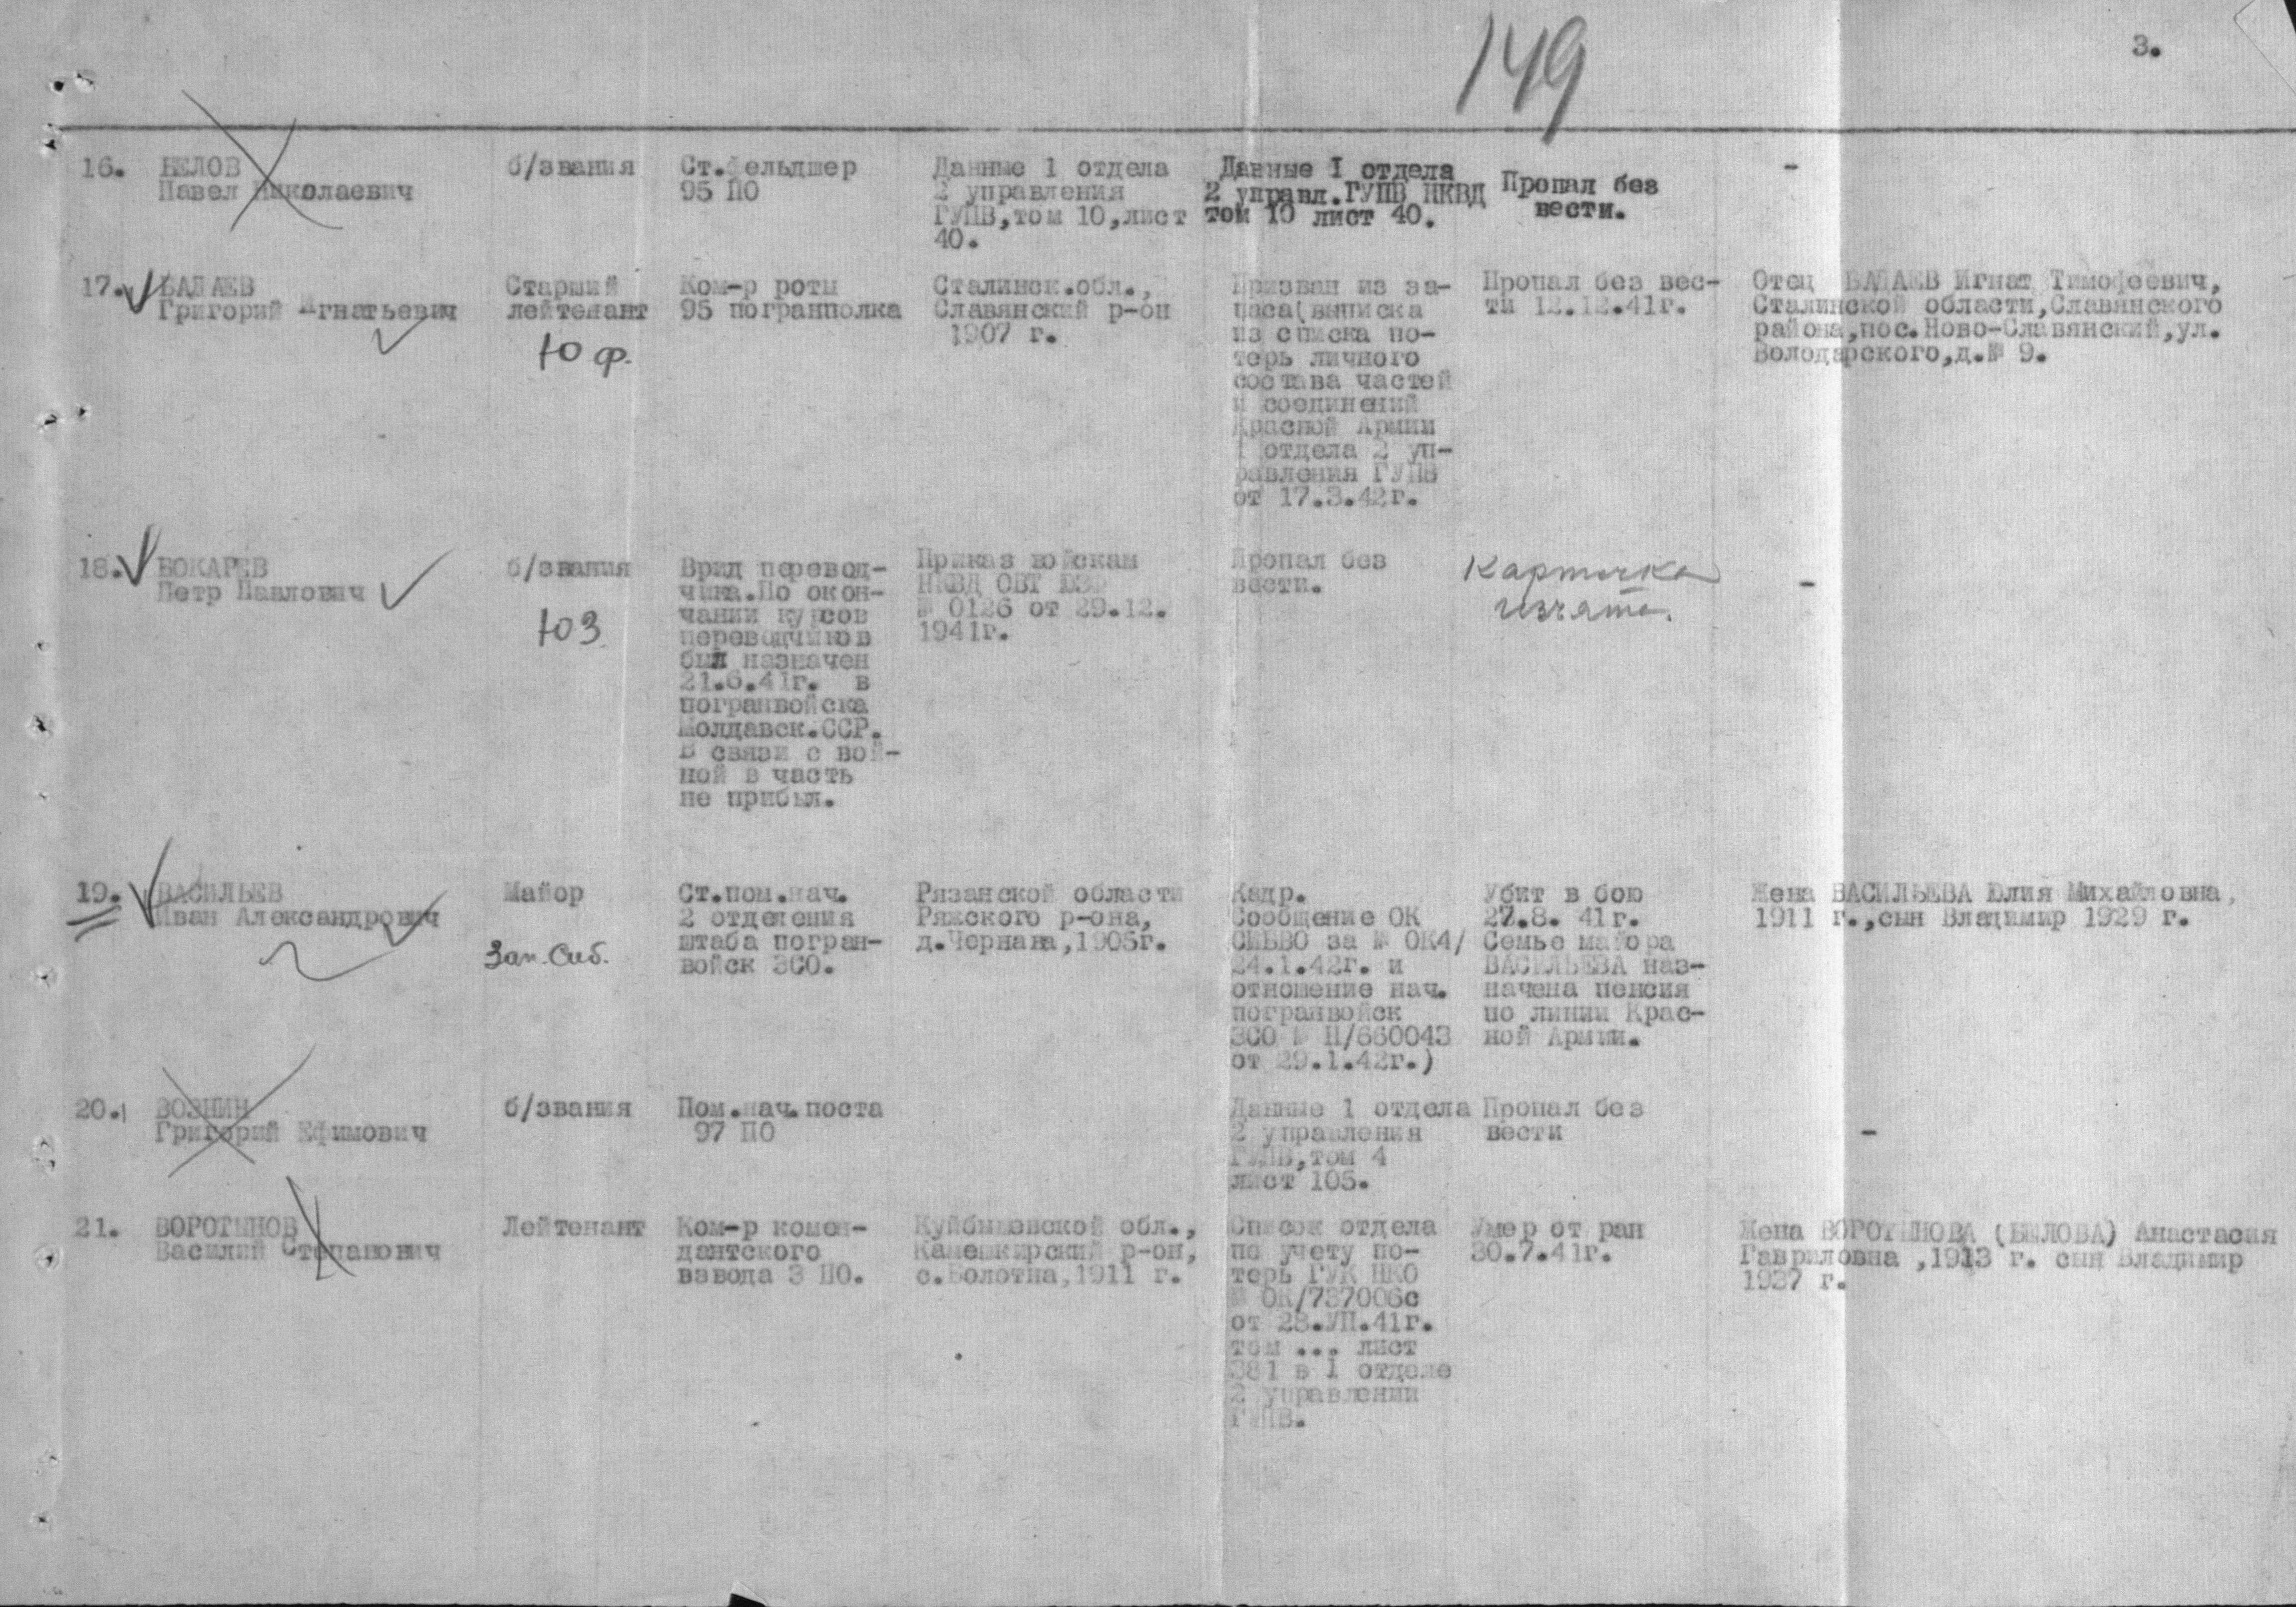 149
3.
16. БЕЛОВ
Павел Николаевич
б/звания
Ст.фельдшер
95 ПО
Данные 1 отдела
2 управления
ГУПВ,том 10,лист
40.
Данные I отдела
2 управл.ГУПВ НКВД
том 10 лист 40.
Пропал без
вести.
-
17. ВАДАЕВ
Григорий Игнатьевич
Старший
лейтенант
Ю ф.
Ком-р роты
95 погранполка
Сталинск.обл.,
Славянский р-он
1907 г.
Призван из за-
паса(выписка
из списка по-
терь личного
состава частей
и соединений
Красной Армии
1 отдела 2 уп-
равления ГУПВ
от 17.3.42г.
Пропал без вес-
ти 12.12.41г.
Отец ВАДАЕВ Игнат Тимофеевич,
Сталинской области,Славянского
района,пос.Ново-Славянский,ул.
Володарского,д.№ 9.
18. БОКАРЕВ
Петр Павлович
б/звания
ЮЗ
Врид перевод-
чика.По окон-
чании курсов
переводчиков
был назначен
21.6.41г. в
погранвойска
Молдавск.ССР.
В связи с вой-
ной в часть
не прибыл.
Приказ войскам
НКВД ОВТ ЮЗФ
№ 0126 от 29.12.
1941г.
Пропал без
вести.
Карточка
изъята.
-
19. ВАСИЛЬЕВ
Иван Александрович
Майор
Зап.Сиб.
Ст.пом.нач.
2 отделения
штаба погран-
войск ЗСО.
Рязанской области
Ряжского р-она,
д.Чернава,1905г.
Кадр.
Сообщение ОК
СИБВО за № ОК4/
24.1.42г. и
отношение нач.
погранвойск
ЗСО № П/660043
от 29.1.42г.)
Убит в бою
27.8. 41г.
Семье майора
ВАСИЛЬЕВА наз-
начена пенсия
по линии Крас-
ной Армии.
Жена ВАСИЛЬЕВА Юлия Михайловна,
1911 г.,сын Владимир 1929 г.
20. ВОЗНИН
Григорий Ефимович
б/звания
Пом.нач.поста
97 ПО
Данные 1 отдела
2 управления
ГУПВ,том 4
лист 105.
Пропал без
вести
-
21. ВОРОТЫНОВ
Василий Степанович
Лейтенант
Ком-р комен-
дантского
взвода 3 ПО.
Куйбышевской обл.,
Камешкирский р-он,
с.Болотна,1911 г.
Список отдела
по учету по-
терь ГУК НКО
№ ОК/737006с
от 28.УП.41г.
том ... лист
381 в 1 отделе
2 управлении
ГУПВ.
Умер от ран
30.7.41г.
Жена ВОРОТЫНОВА (БЫЛОВА) Анастасия
Гавриловна ,1913 г. сын Владимир
1937 г.